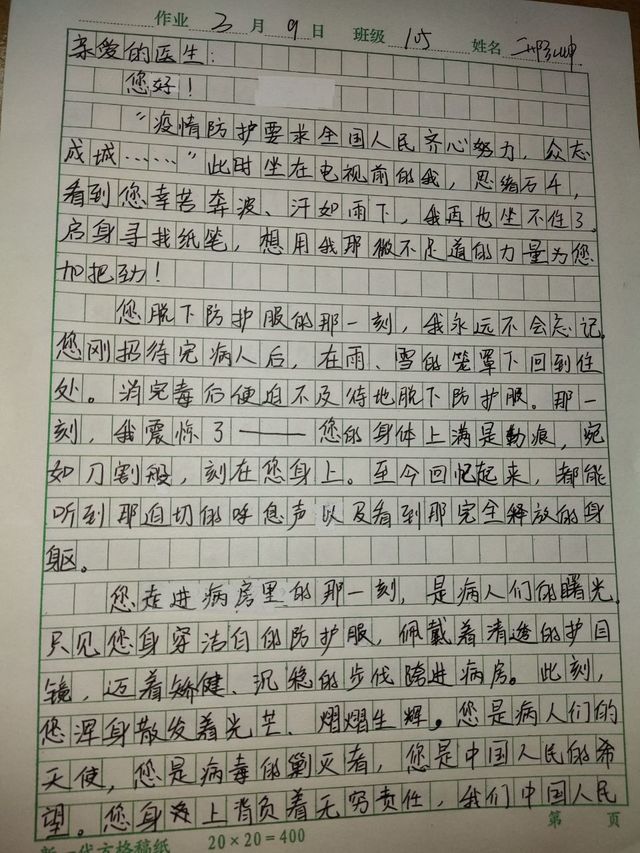 作业 3月9日 班级 105 姓名
亲爱的医生：
您好！
“疫情防护要求全国人民齐心努力，众志
成城……”此时坐在电视前的我，思绪万千，
看到您幸苦奔波、汗如雨下，我再也坐不住了。
启身寻找纸笔，想用我那微不足道的力量为您
加把劲！
您脱下防护服的那一刻，我永远不会忘记。
您刚招待完病人后，在雨、雪的笼罩下回到住
处。消完毒后便迫不及待地脱下防护服。那一
刻，我震惊了——您的身体上满是勒痕，宛
如刀割般，刻在您身上。至今回忆起来，都能
听到那迫切的呼息声以及看到那完全释放的身
躯。
您走进病房里的那一刻，是病人们的曙光。
只见您身穿洁白的防护服，佩戴着清透的护目
镜，迈着矫健、沉稳的步伐跨进病房。此刻，
您浑身散发着光芒、熠熠生辉。您是病人们的
天使，您是病毒的剿灭者，您是中国人民的希
望。您身上背负着无穷责任，我们中国人民
新一代方格稿纸 20×20=400 第 页